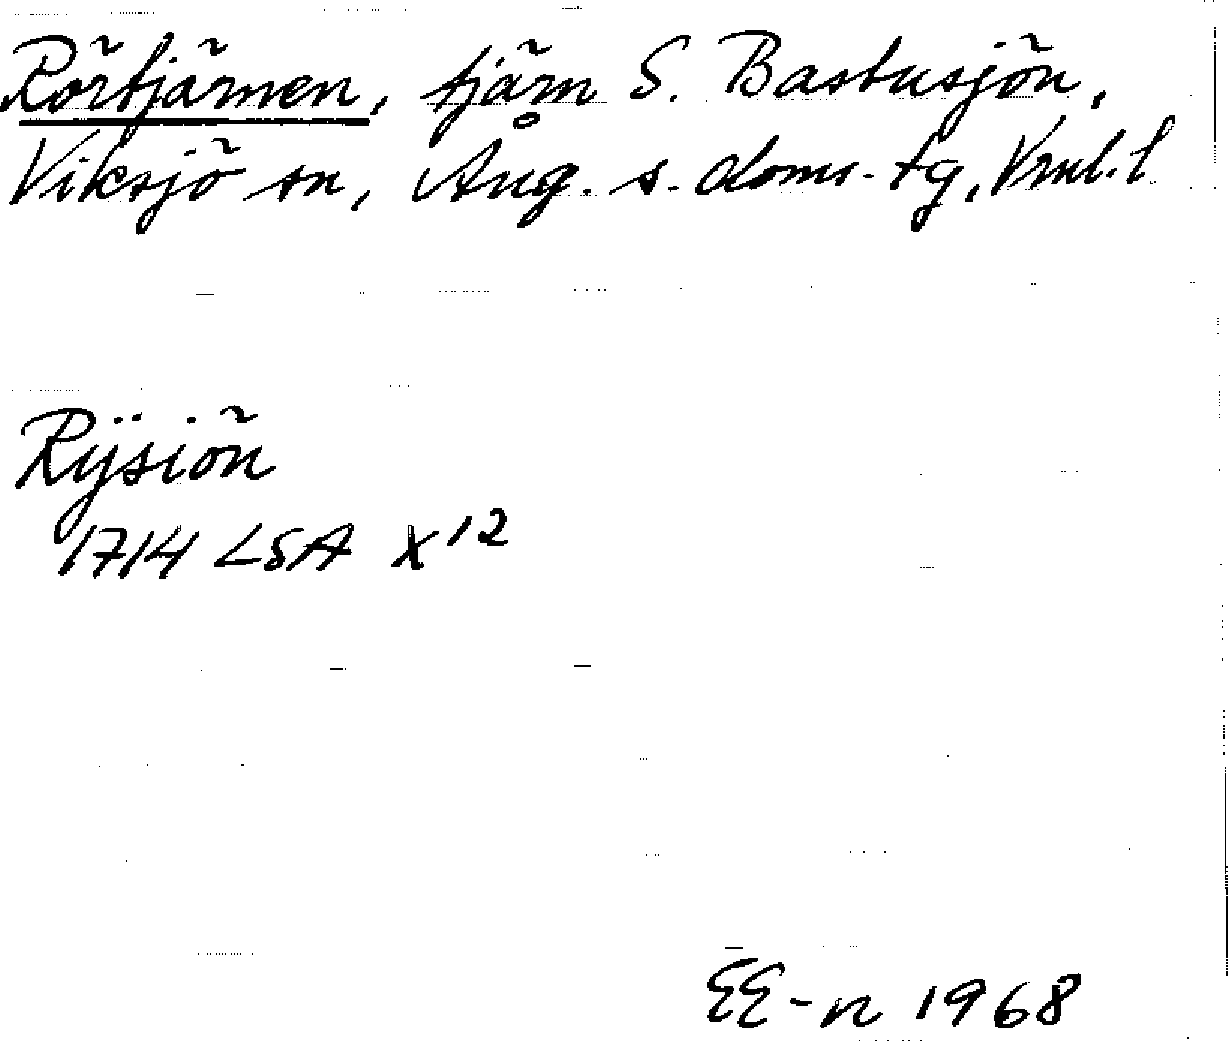 Rörtjärnen, tjärn S. Bastusjön,
Viksjö sn, Ång. s. doms. tg, Vnl. l
Rÿsiön
1714 LSA X12
EE-n 1968